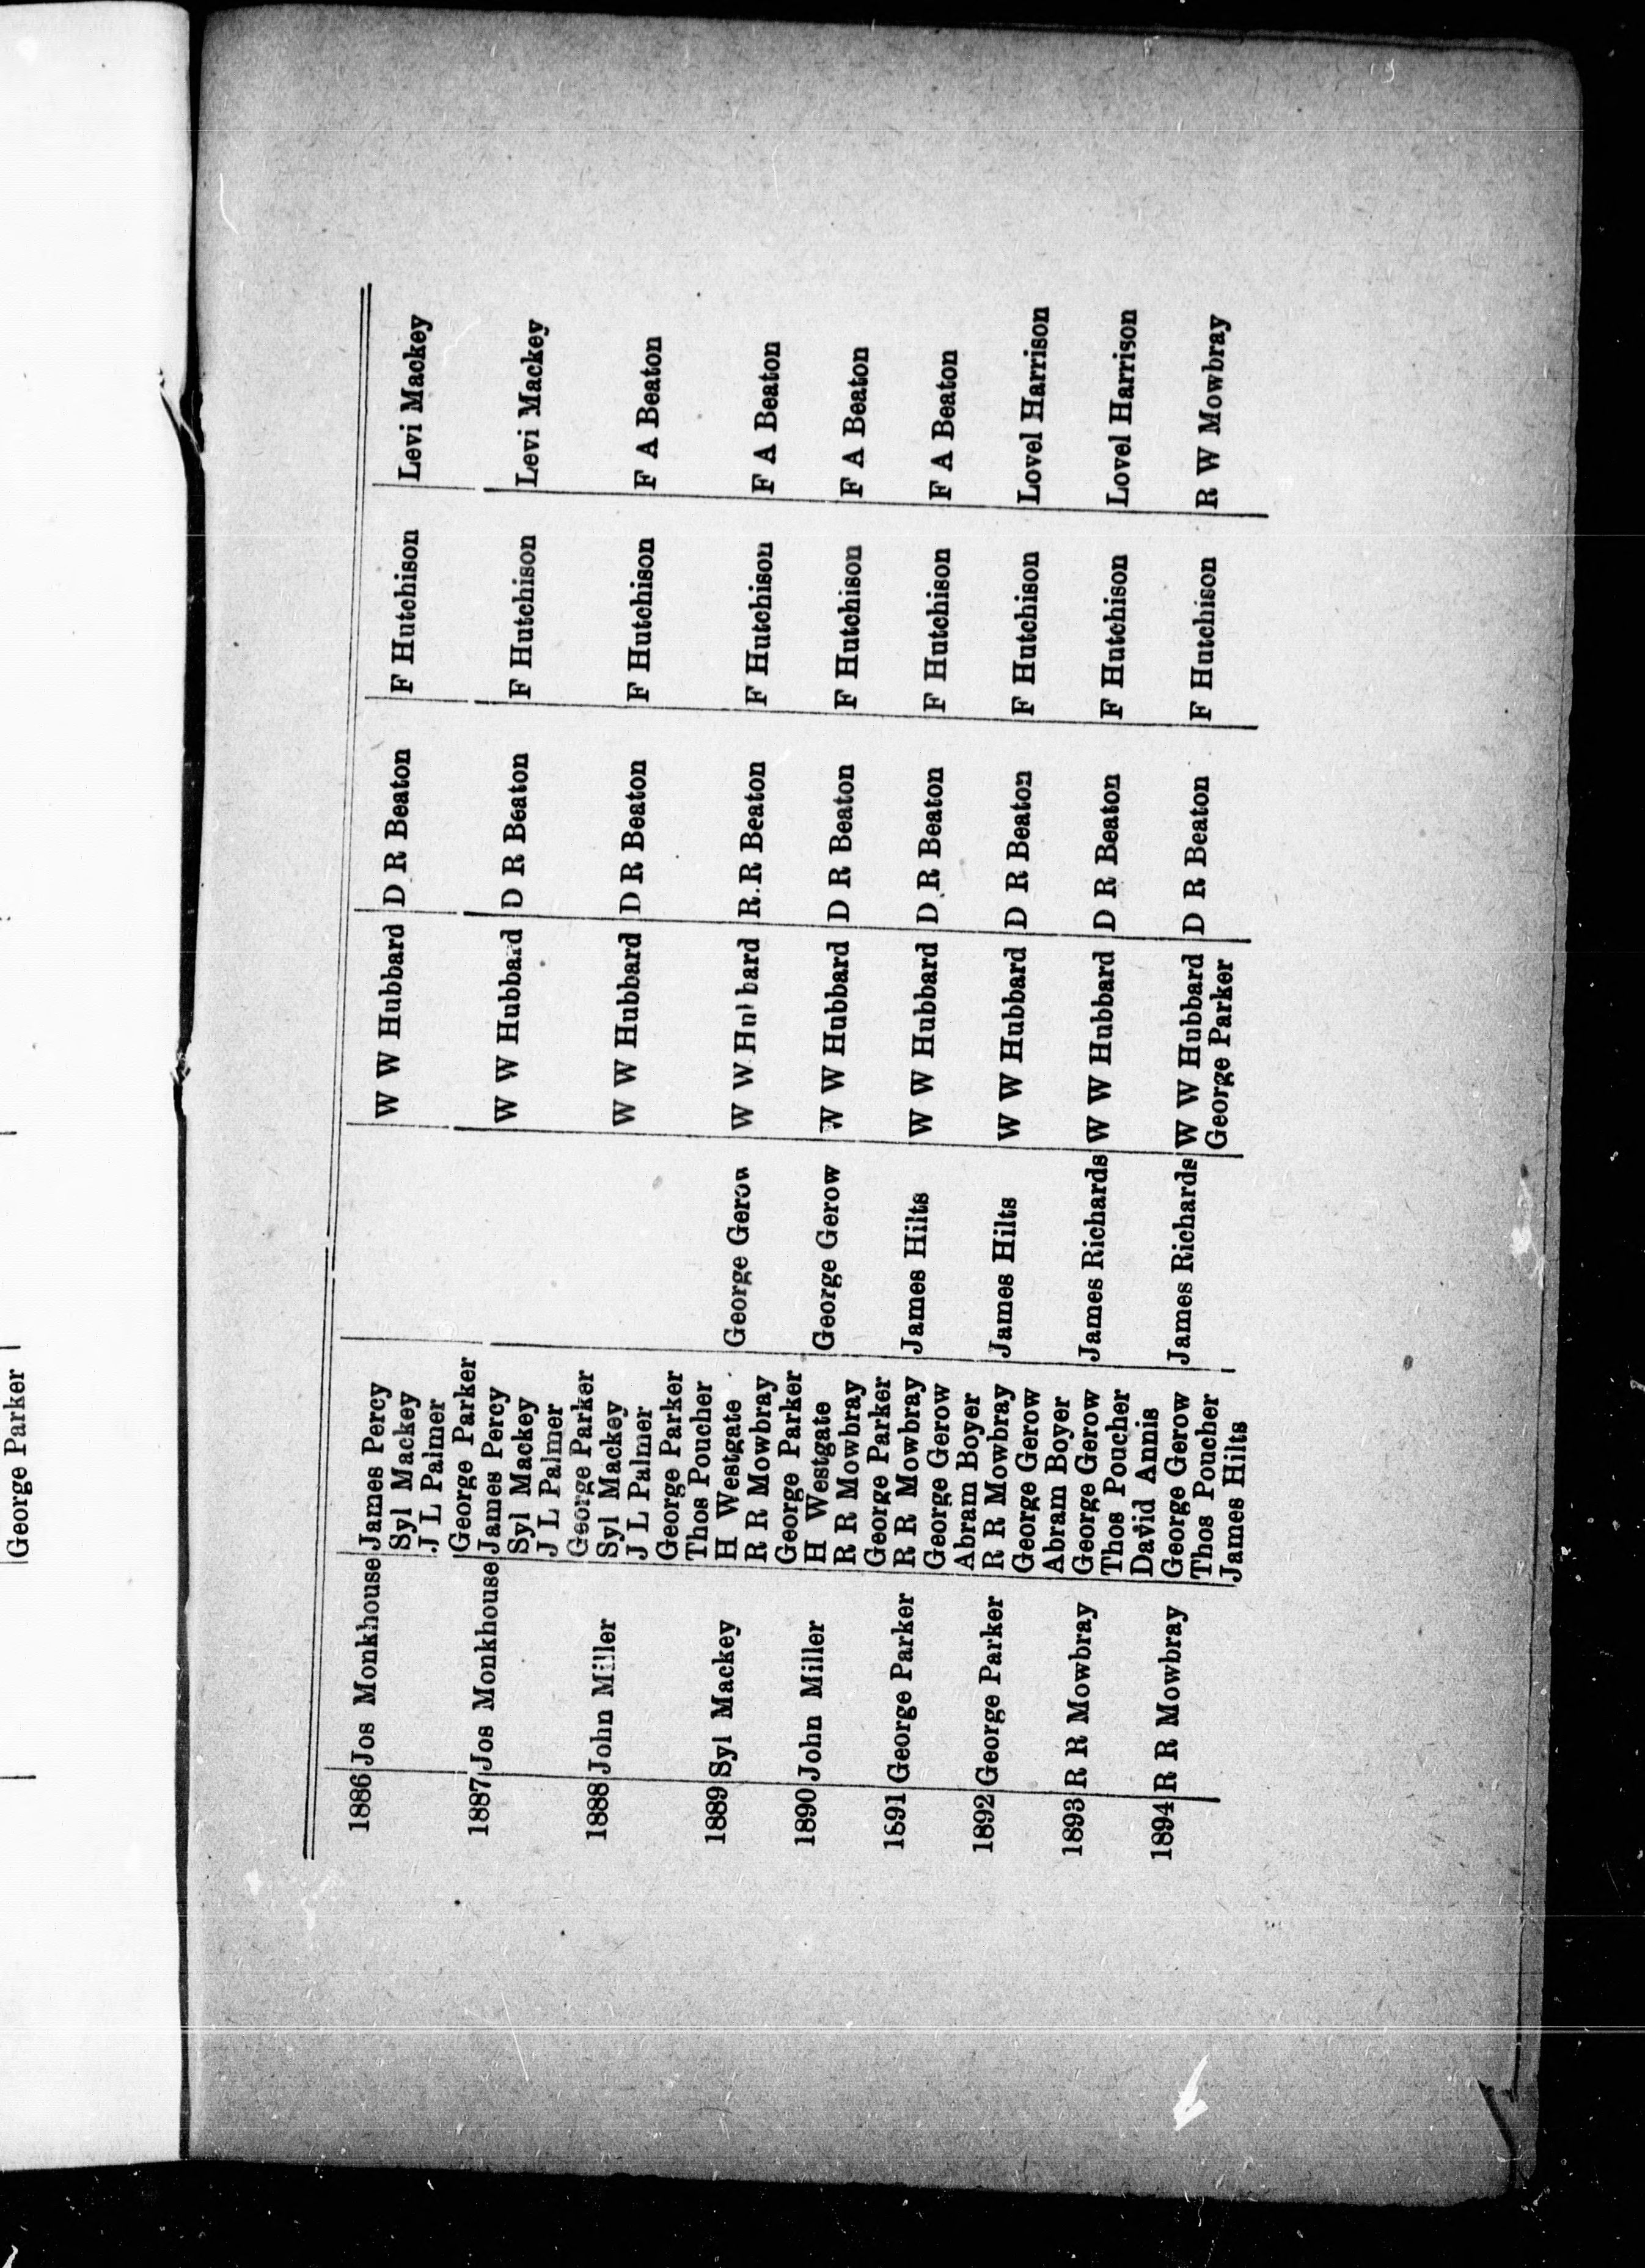 George Parker
1886 Jos Monkhouse James Percy W W Hubbard D R Beaton F Hutchison Levi Mackey
Syl Mackey
J L Palmer
George Parker
1887 Jos Monkhouse James Percy W W Hubbard D R Beaton F Hutchison Levi Mackey
Syl Mackey
J L Palmer
George Parker
1888 John Miller Syl Mackey W W Hubbard D R Beaton F Hutchison F A Beaton
J L Palmer
George Parker
Thos Poucher
1889 Syl Mackey H Westgate George Gerow W W Hubbard R R Beaton F Hutchison F A Beaton
R R Mowbray
George Parker
1890 John Miller H Westgate George Gerow W W Hubbard D R Beaton F Hutchison F A Beaton
R R Mowbray
George Parker
1891 George Parker R R Mowbray James Hilts W W Hubbard D R Beaton F Hutchison F A Beaton
George Gerow
Abram Boyer
1892 George Parker R R Mowbray James Hilts W W Hubbard D R Beaton F Hutchison Lovel Harrison
George Gerow
Abram Boyer
1893 R R Mowbray George Gerow James Richards W W Hubbard D R Beaton F Hutchison Lovel Harrison
Thos Poucher
David Annis
1894 R R Mowbray George Gerow James Richards W W Hubbard D R Beaton F Hutchison R W Mowbray
Thos Poucher George Parker
James Hilts